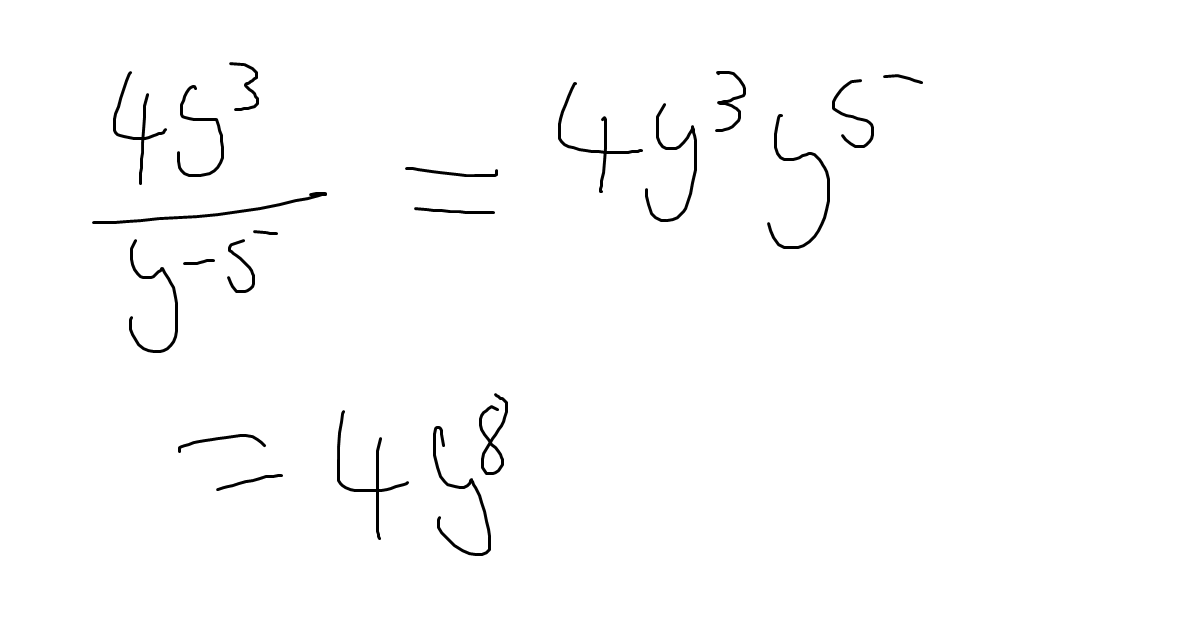 4y³/y⁻⁵ = 4y³y⁵
= 4y⁸